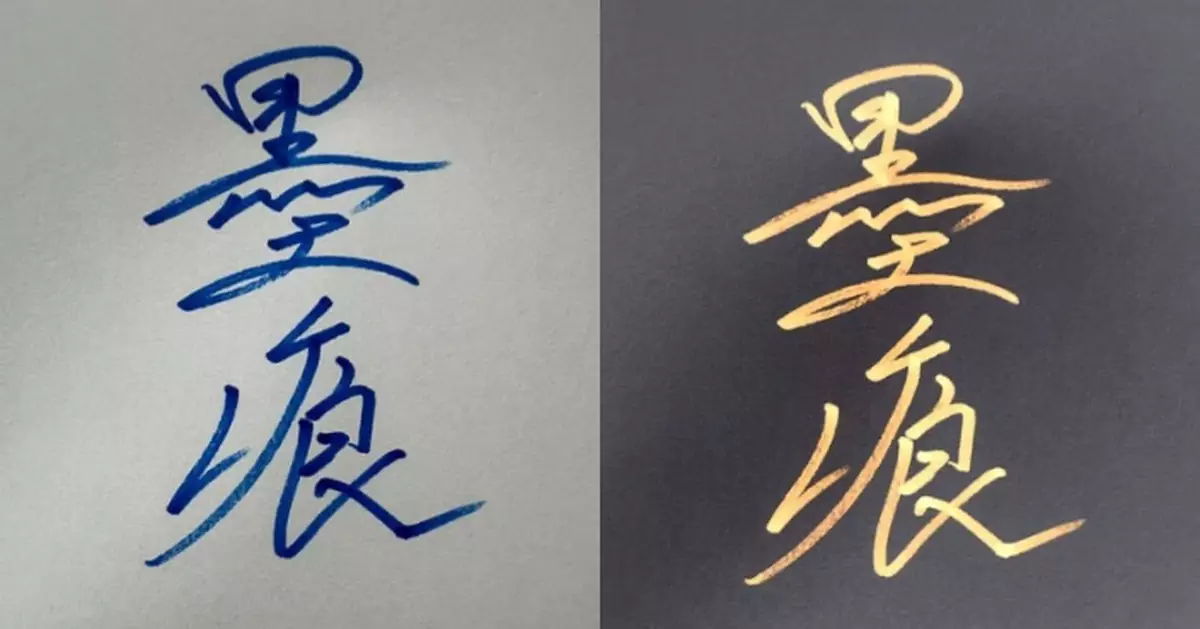 墨痕
墨痕